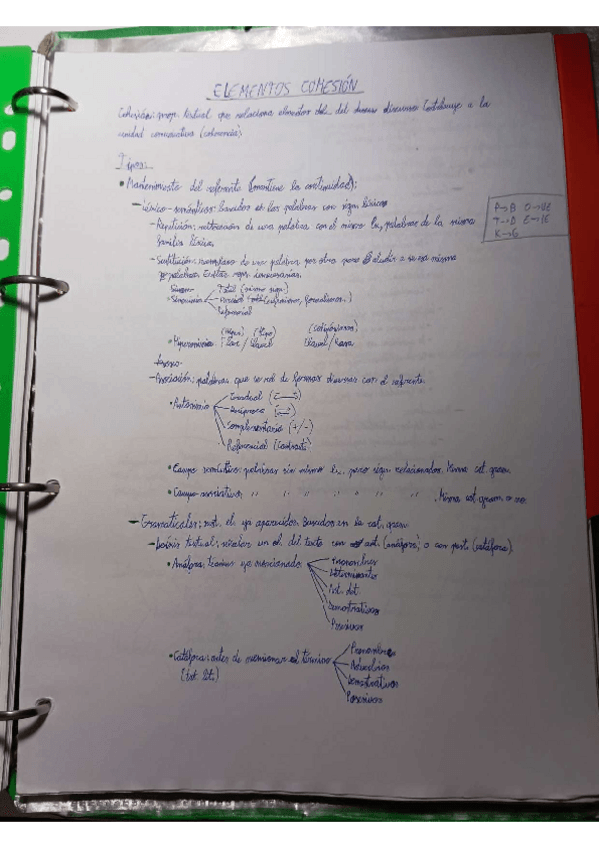 ELEMENTOS COHESIÓN
Cohesión: prop. textual que relaciona elementos del discurso Contribuye a la
unidad comunicativa (coherencia)
Tipos:
• Mantenimiento del referente (mantiene la continuidad):
- Léxico-semánticos: basados en las palabras con sign. léxico
- Repetición: reiteración de una palabra con el mismo lex, palabras de la misma
familia léxica.
- Sustitución: reemplazo de una palabra por otra para aludir a esa misma
Evitar rep. innecesarias.
• Sinonimia
Total (mismo sign.)
Parcial
Referencial
• Hiperonimia
(hiper) (hipo) (Cohipónimos)
Flor / Clavel Clavel / Rosa
- Asociación: palabras que se rel de formas diversas con el referente.
• Antonimia
Gradual
Recíproca
Complementaria (+/-)
Referencial (contraste)
• Campo semántico: palabras sin mismo l., pero sign. relacionados. Misma cat. gram.
• Campo asociativo: " " " " " " . Misma cat. gram. o no.
- Gramaticales: not. el. ya aparecidos. Basados en la cat. gram.
- Deixis textual: señalar un el. del texto con ant. (anáfora) o con post. (catáfora).
• Anáfora: término ya mencionado
Pronombres
Determinante
Art. det.
Demostrativos
Posesivos
• Catáfora: antes de mencionar el término
Pronombres
Adverbios
Demostrativos
Posesivos
P→B O→UE
T→D E→IE
K→G